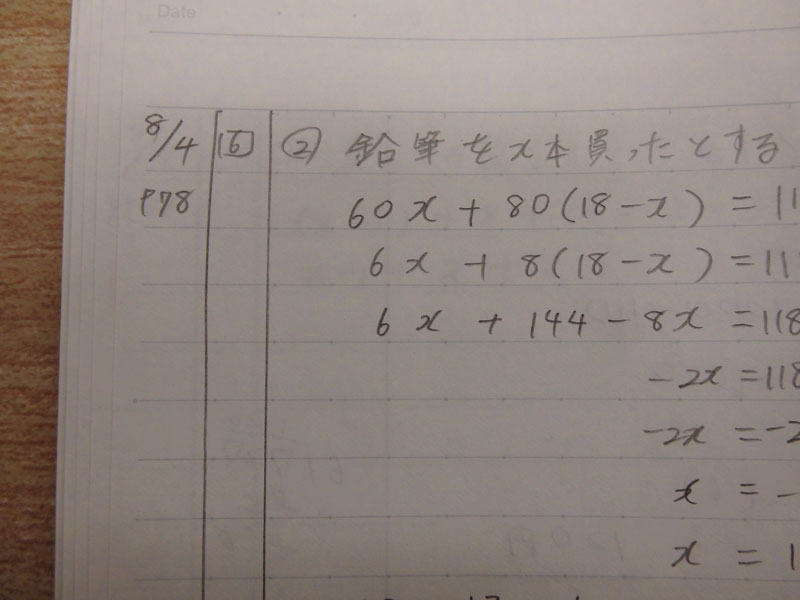 Date
8/4 6 ② 鉛筆をx本買ったとする
P78 60x + 80(18-x) = 11
6x + 8(18-x) = 11
6x + 144 - 8x = 118
-2x = 118
-2x = -2
x = -
x = 1